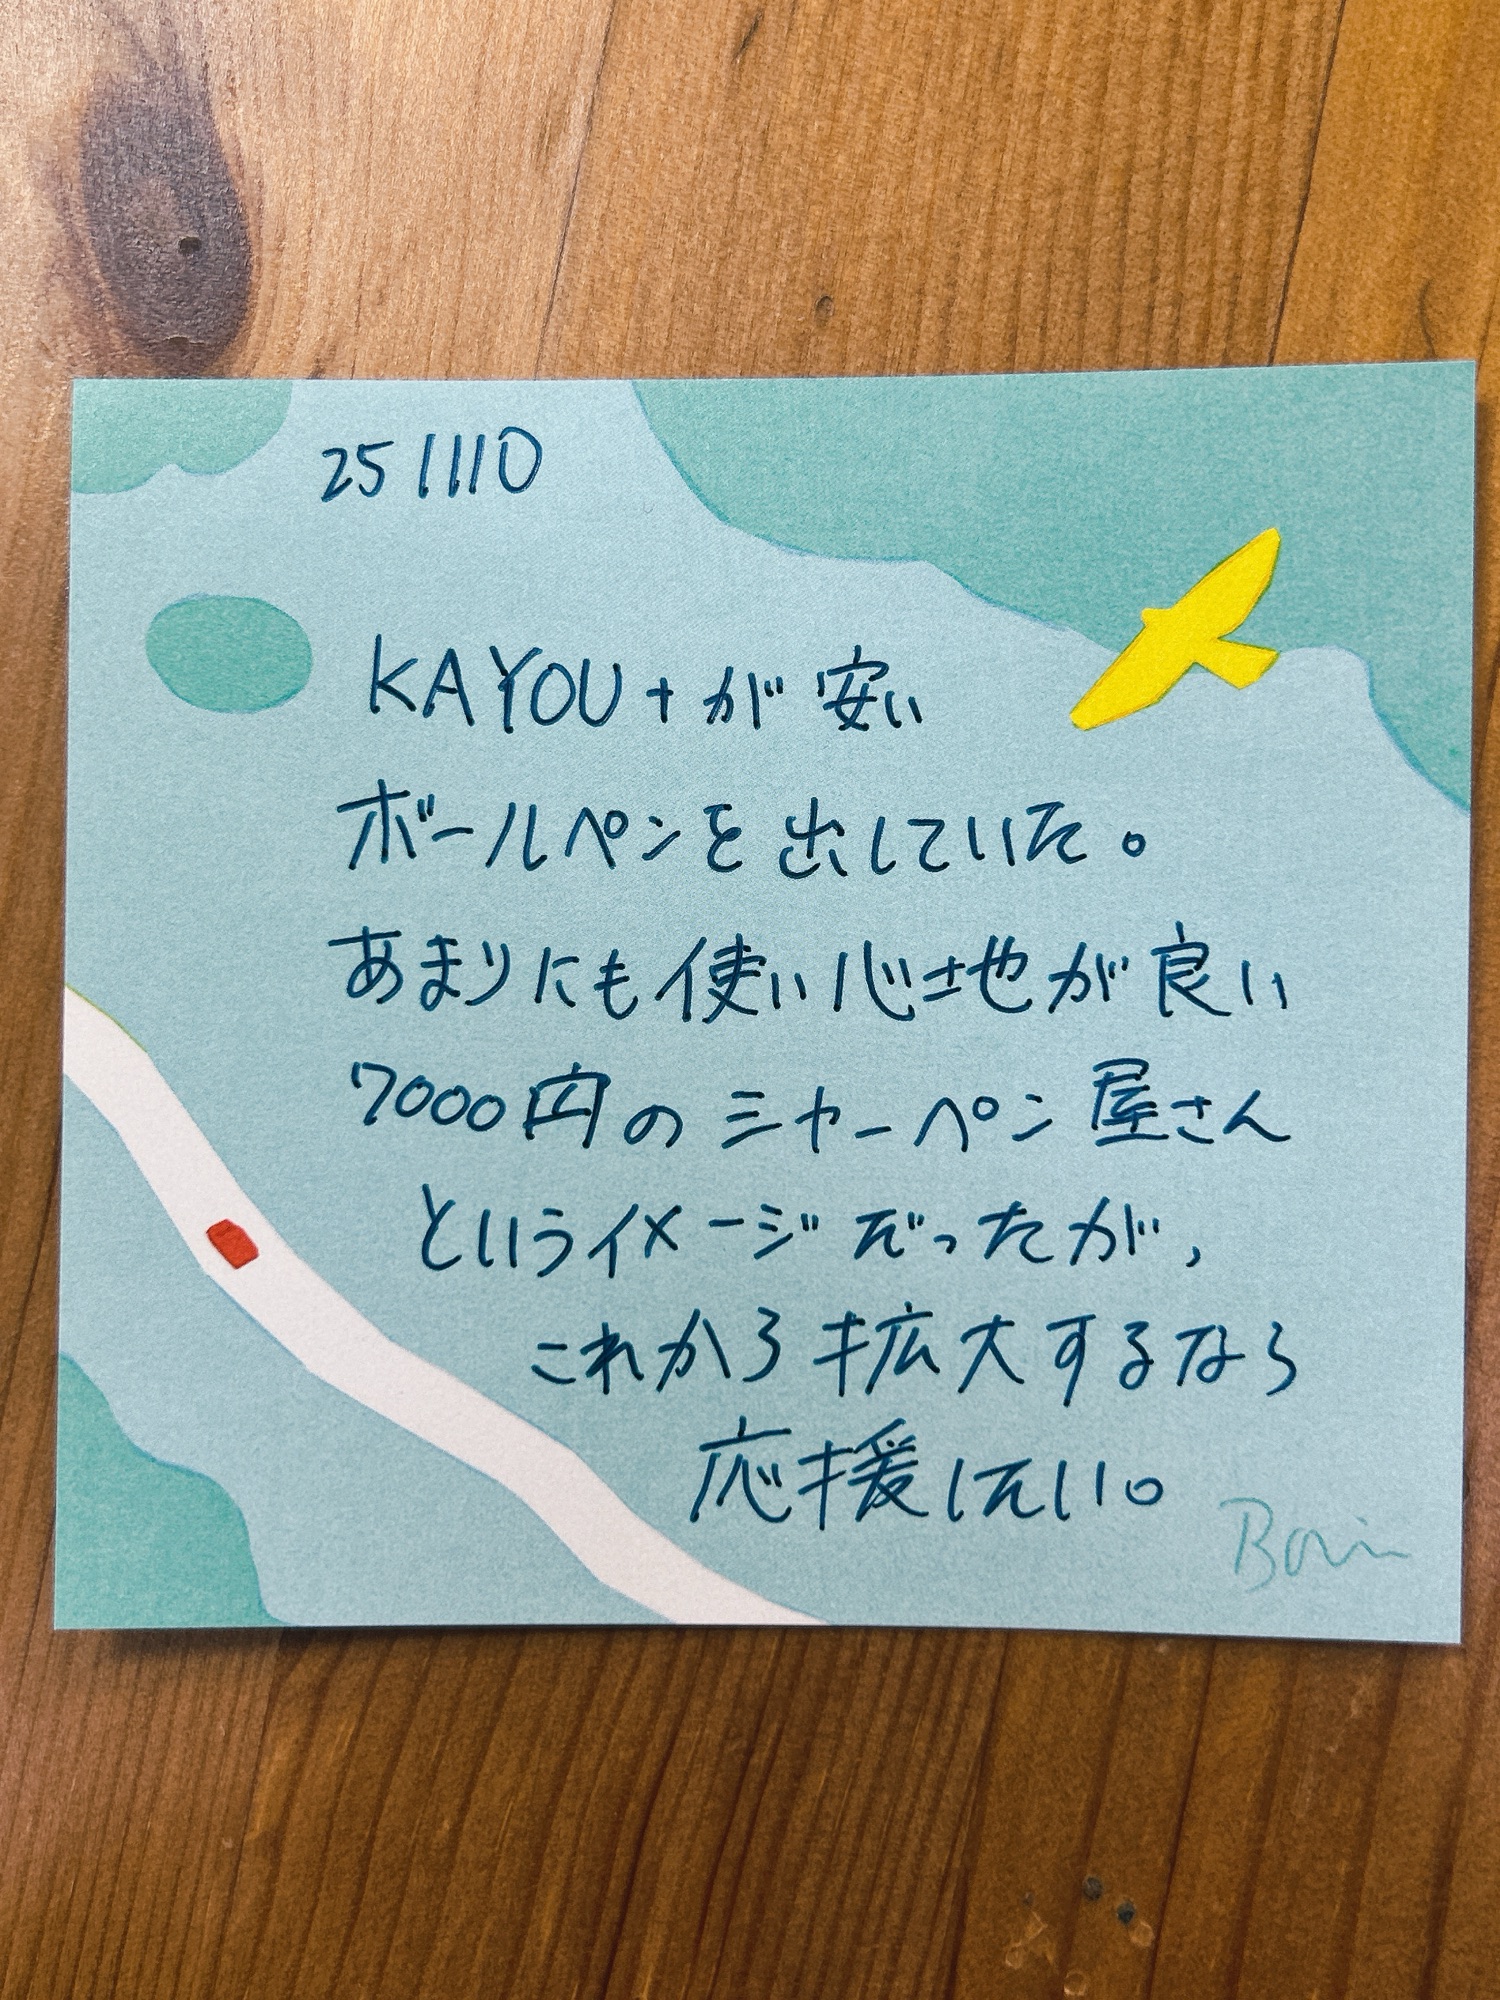 251110
KAYOU+が安い
ボールペンを出していた。
あまりにも使い心地が良い
7000円のシャーペン屋さん
というイメージだったが,
これから拡大するなら
応援したい。